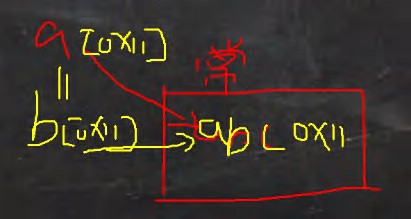 a [0x11]
||
b [0x11]
abc 0x11